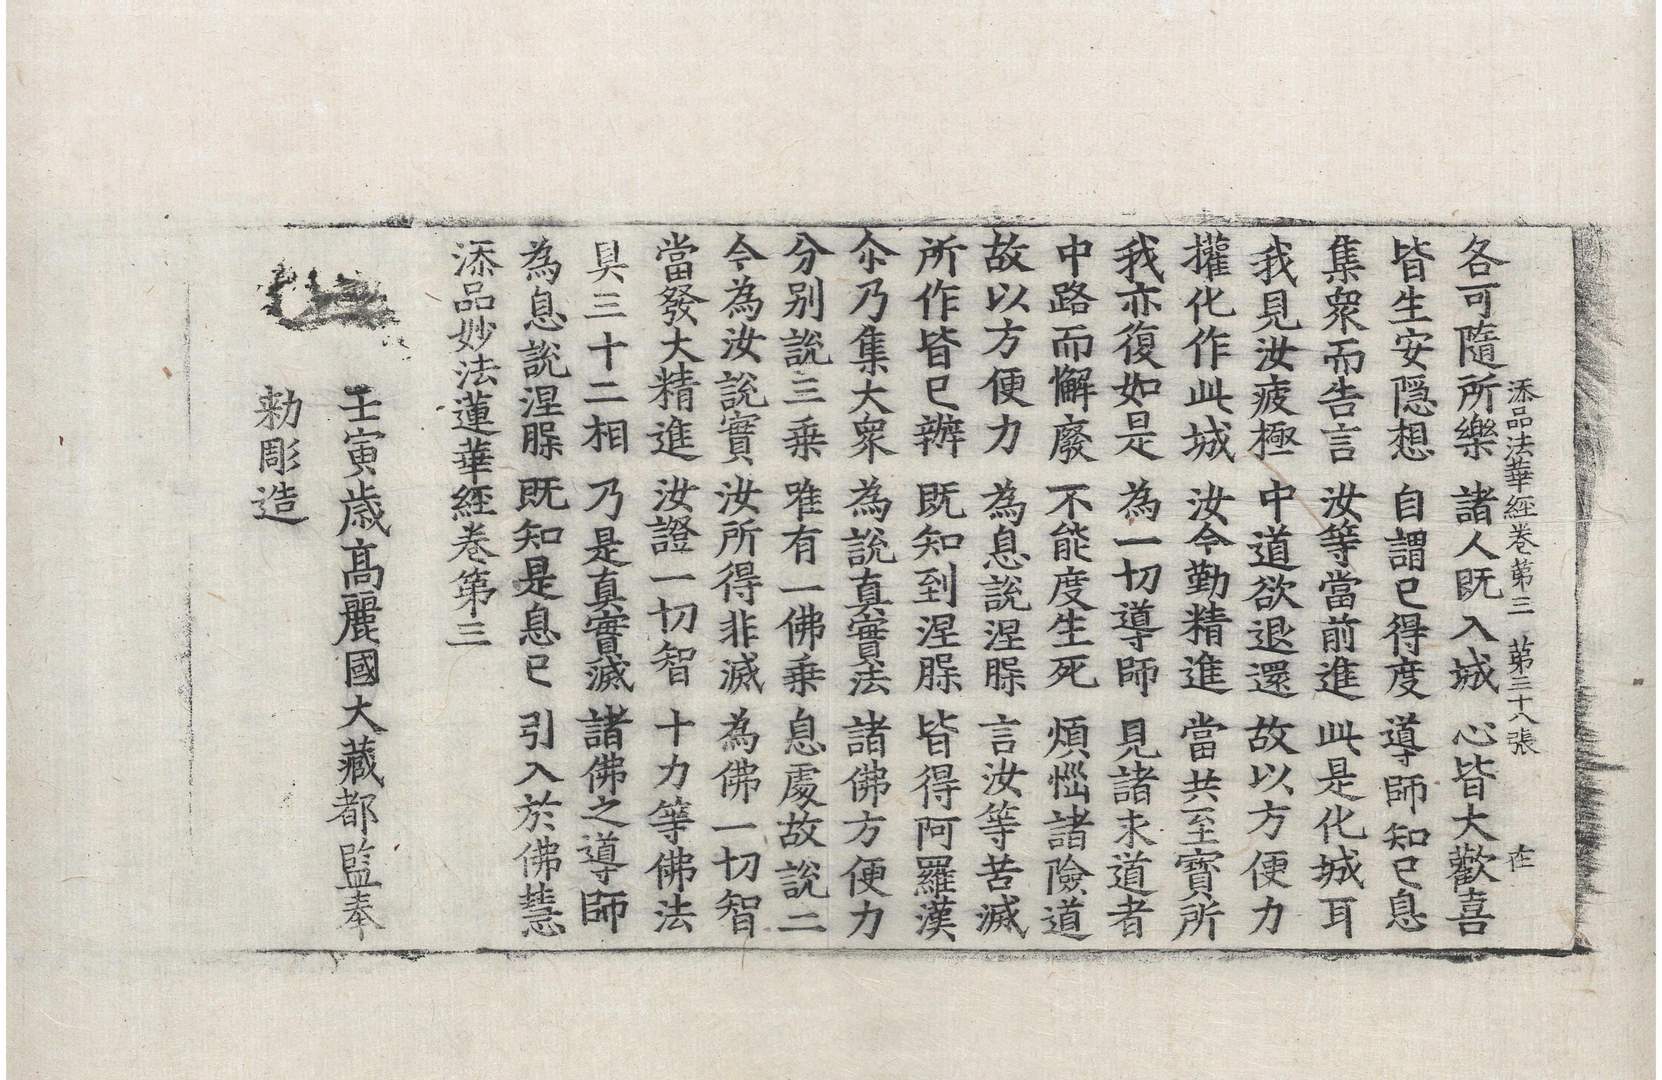 添品法華經卷第三 第三十八張 在
各可隨所樂 諸人既入城 心皆大歡喜
皆生安隱想 自謂已得度 導師知已息
集衆而告言 汝等當前進 此是化城耳
我見汝疲極 中道欲退還 故以方便力
權化作此城 汝今勤精進 當共至寶所
我亦復如是 為一切導師 見諸求道者
中路而懈廢 不能度生死 煩惱諸險道
故以方便力 為息說涅槃 言汝等苦滅
所作皆已辦 既知到涅槃 皆得阿羅漢
尒乃集大衆 為說真實法 諸佛方便力
分別說三乗 唯有一佛乗 息處故說二
今為汝說實 汝所得非滅 為佛一切智
當發大精進 汝證一切智 十力等佛法
具三十二相 乃是真實滅 諸佛之導師
為息說涅槃 既知是息已 引入於佛慧
添品妙法蓮華經卷第三
壬寅歳高麗國大藏都監奉
勑彫造